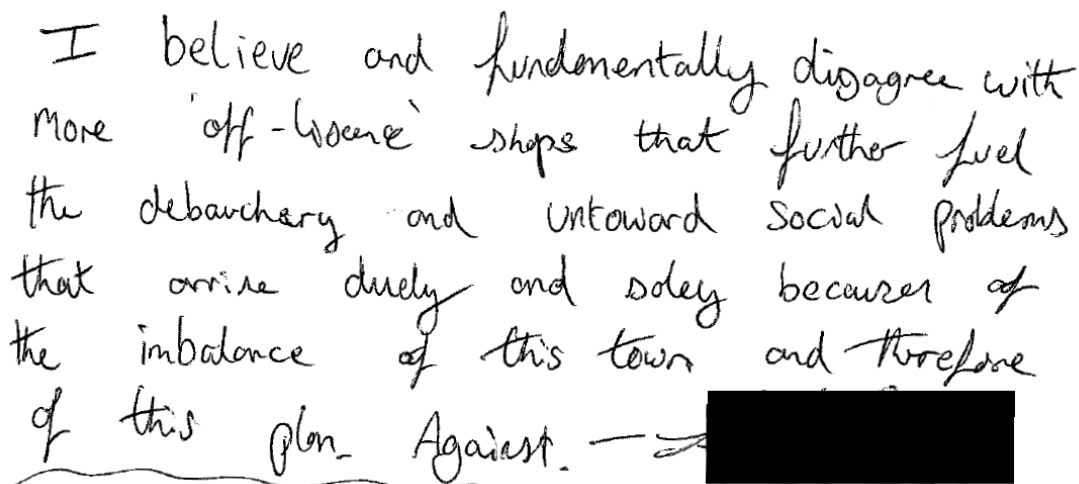 I believe and fundementally disagree with
more 'off-lisence' shops that further fuel
the debauchery and untoward social problems
that arrise duely and soley becauser of
the imbalance of this town and therefore
of this plan. Against. -